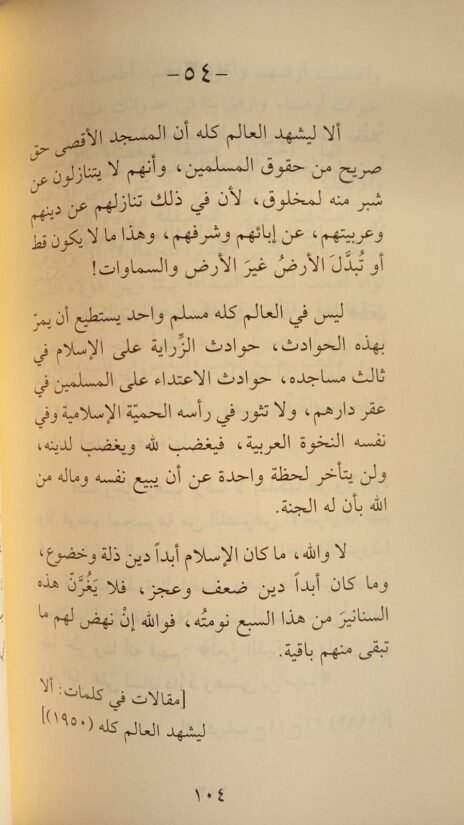 -٥٤-
ألا ليشهد العالم كله أن المسجد الأقصى حق
صريح من حقوق المسلمين، وأنهم لا يتنازلون عن
شبر منه لمخلوق، لأن في ذلك تنازلهم عن دينهم
وعربيتهم، عن إبائهم وشرفهم، وهذا ما لا يكون قط
أو تُبدَّلَ الأرضُ غيرَ الأرض والسماوات!
ليس في العالم كله مسلم واحد يستطيع أن يمرّ
بهذه الحوادث، حوادث الزِّراية على الإسلام في
ثالث مساجده، حوادث الاعتداء على المسلمين في
عقر دارهم، ولا تثور في رأسه الحميّة الإسلامية وفي
نفسه النخوة العربية، فيغضب لله ويغضب لدينه،
ولن يتأخر لحظة واحدة عن أن يبيع نفسه وماله من
الله بأن له الجنة.
لا والله، ما كان الإسلام أبداً دين ذلة وخضوع،
وما كان أبداً دين ضعف وعجز، فلا يَغُرَّنّ هذه
السنانيرَ من هذا السبع نومتُه، فوالله إنْ نهض لهم ما
تبقى منهم باقية.
[مقالات في كلمات: ألا
ليشهد العالم كله (١٩٥٠)]
١٠٤